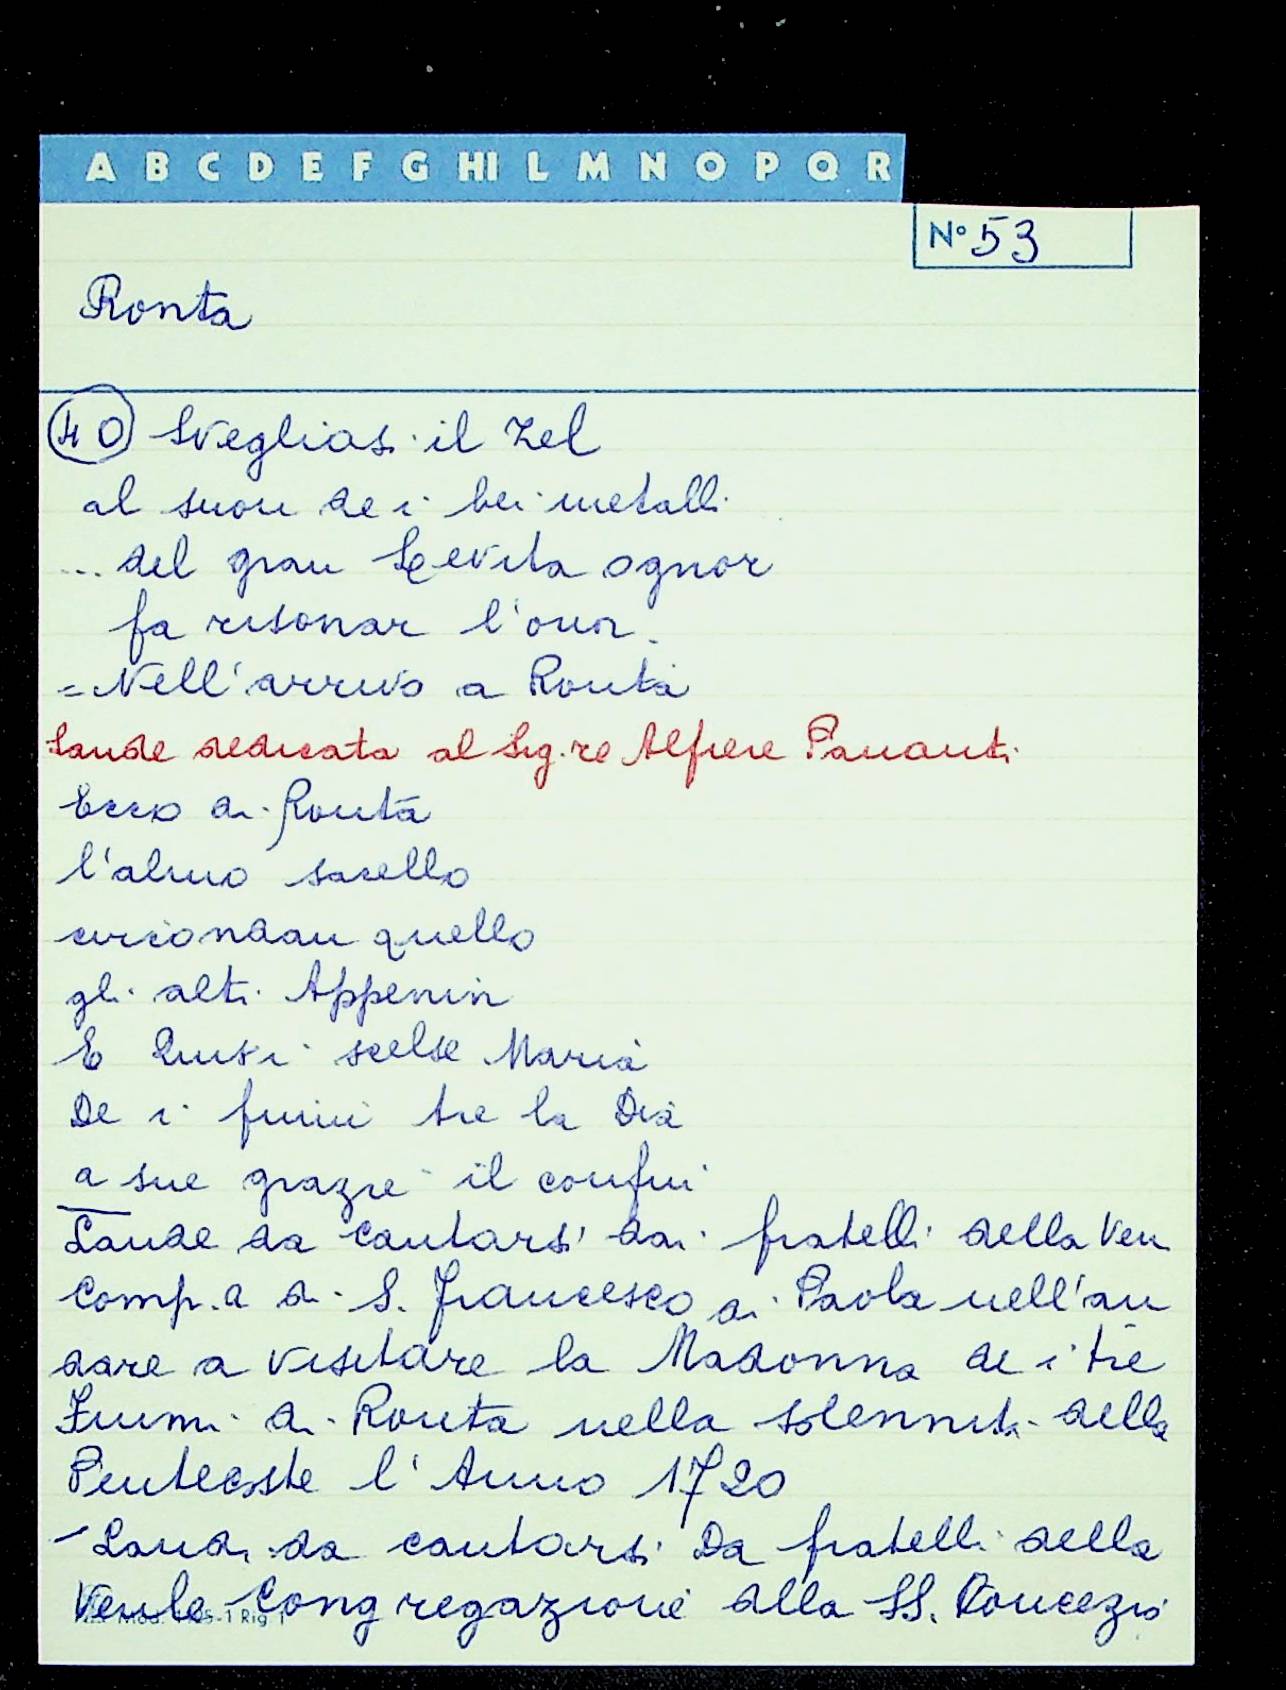 A B C D E F G HI L M N O P Q R
N° 53
Ronta
40 Svegliasi il zel
al suon de i bei metalli
... del gran Levita ognor
fa risonar l'oun.
= Nell'arrivo a Ronta
Laude dedicata al Sig.re Alfiere Pananti
Ecco di Ronta
l'almo sacello
circondan quello
gli alti Appenin
E quivi scelse Maria
De i fiumi tre la Dia
a sue grazie il confin
Laude da cantarsi dai fratelli della Ven
Comp.a di S. Francesco di Paola nell'an
dare a visitare la Madonna de i tre
Fiumi di Ronta nella solennità della
Pentecoste l'Anno 1720
- Laudi da cantarsi Da fratelli della
Ven.le Congregazione della SS. Concezio